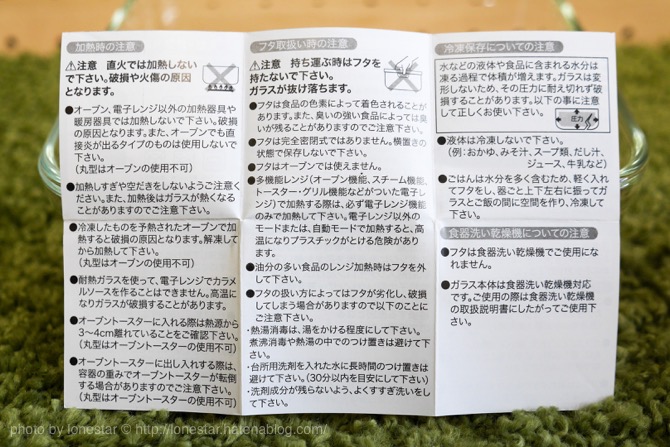 加熱時の注意
⚠注意 直火では加熱しない
で下さい。破損や火傷の原因
となります。
●オーブン、電子レンジ以外の加熱器具や
暖房器具では加熱しないで下さい。破損
の原因となります。また、オーブンでも直
接炎が出るタイプのものは使用しないで
下さい。
(丸型はオーブンの使用不可)
●加熱しすぎや空だきをしないようご注意く
ださい。また、加熱後はガラスが熱くなる
ことがありますのでご注意下さい。
●冷凍したものを予熱されたオーブンで加
熱すると破損の原因となります。解凍して
から加熱して下さい。
(丸型はオーブンの使用不可)
●耐熱ガラスを使って、電子レンジでカラメ
ルソースを作ることはできません。高温に
なりガラスが破損することがあります。
●オーブントースターに入れる際は熱源から
3〜4cm離れていることをご確認下さい。
(丸型はオーブントースターの使用不可)
●オーブントースターに出し入れする際は、
容器の重みでオーブントースターが転倒
する場合がありますのでご注意下さい。
(丸型はオーブントースターの使用不可)
フタ取扱い時の注意
⚠注意 持ち運ぶ時はフタを
持たないで下さい。
ガラスが抜け落ちます。
●フタは食品の色素によって着色されることが
あります。また、臭いの強い食品によっては臭
いが残ることがありますのでご注意下さい。
●フタは完全密閉式ではありません。横置きの
状態で保存しないで下さい。
●フタはオーブンでは使えません。
●多機能レンジ(オーブン機能、スチーム機能、
トースター・グリル機能などがついた電子レン
ジ)で加熱する際は、必ず電子レンジ機能
のみで加熱して下さい。電子レンジ以外の
モードまたは、自動モードで加熱すると、高
温になりプラスチックがとける危険があり
ます。
●油分の多い食品のレンジ加熱時はフタを外
して下さい。
●フタの扱い方によってはフタが劣化し、破損
してしまう場合がありますので以下のことに
ご注意下さい。
・熱湯消毒は、湯をかける程度にして下さい。
煮沸消毒や熱湯の中でのつけ置きは避けて下
さい。
・台所用洗剤を入れた水に長時間のつけ置きは
避けて下さい。(30分以内を目安にして下さい)
・洗剤成分が残らないよう、よくすすぎ洗いをし
て下さい。
冷凍保存についての注意
水などの液体や食品に含まれる水分は
凍る過程で体積が増えます。ガラスは変
形しないため、その圧力に耐え切れず破
損することがあります。以下の事に注意
して正しくお使い下さい。
圧力
●液体は冷凍しないで下さい。
(例:おかゆ、みそ汁、スープ類、だし汁、
ジュース、牛乳など)
●ごはんは水分を多く含むため、軽く入れ
てフタをし、器ごと上下左右に振ってガラ
スとご飯の間に空間を作り、冷凍して
下さい。
食器洗い乾燥機についての注意
●フタは食器洗い乾燥機でご使用にな
れません。
●ガラス本体は食器洗い乾燥機対応
です。ご使用の際は食器洗い乾燥機
の取扱説明書にしたがってご使用下
さい。
photo by lonestar © http://lonestar.hatenablog.com/